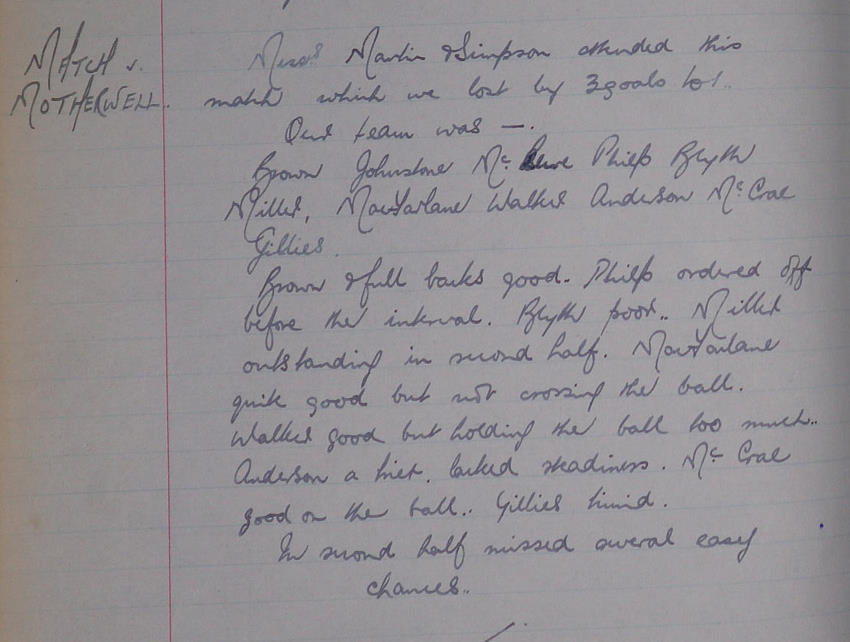 MATCH v.
MOTHERWELL.
Messrs Martin & Simpson attended this
match which we lost by 3 goals to 1.
Our team was —.
Brown Johnstone Mc Philp Blyth
Miller, MacFarlane Walker Anderson McCrae
Gillies.
Brown & full backs good. Philp ordered off
before the interval. Blyth poor.. Miller
outstanding in second half. MacFarlane
quite good but not crossing the ball.
Walker good but holding the ball too much..
Anderson a trier. lacked steadiness. McCrae
good on the ball.. Gillies timid.
In second half missed several easy
chances..